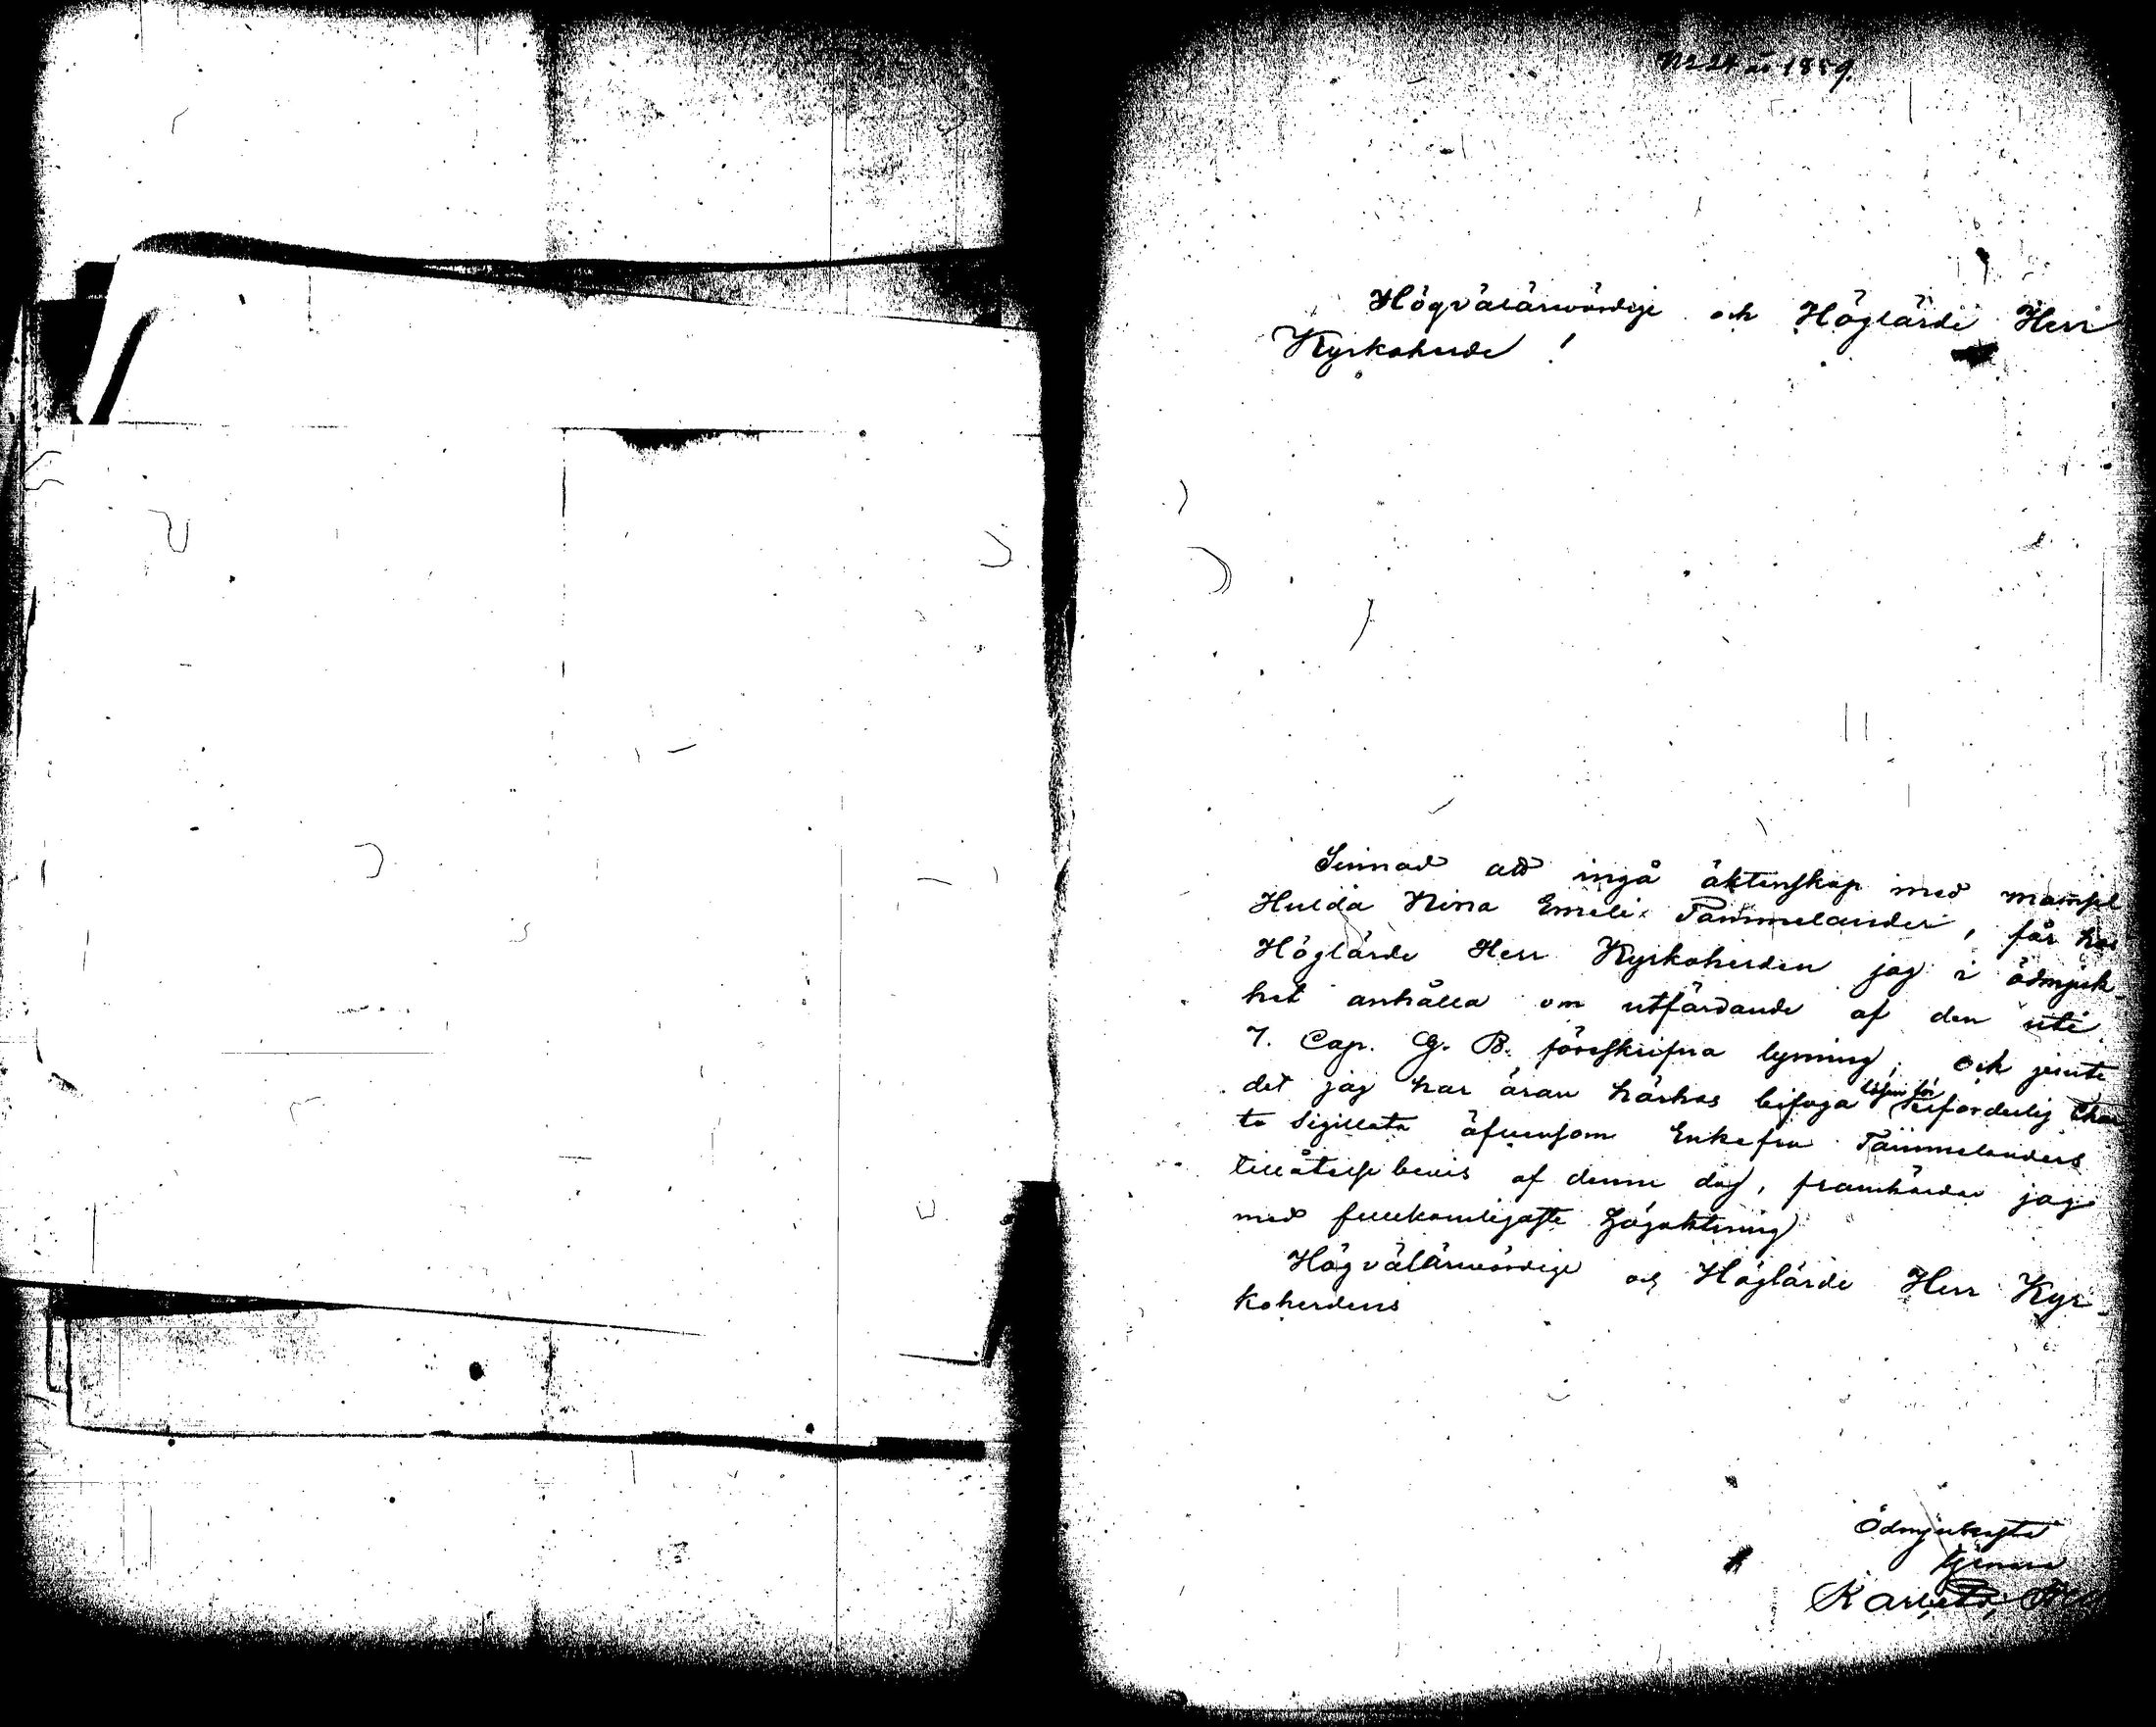 No 24 år 1859.
Högvälärwördige och Höglärde Herr
Kyrkoherde!
Sinnad att ingå äktenskap med mamsel
Hulda Nina Emeli Tammelander, får hos
Höglärde Herr Kyrkoherden jag i ödmjuk-
het anhålla om utfärdande af den uti
7. Cap. G. B. föreskrifna lysning, och
det jag har äran härhos bifoga lösen för erforderlig Char
ta Sigillata äfvensom Enkefru Tammelanders
tillåtelse bevis af denne dag, framhärdar jag
med fullkomligaste högaktning
Högvälärwördige och Höglärde Herr Kyr-
koherdens
Ödmjukaste
tjenare
Karl